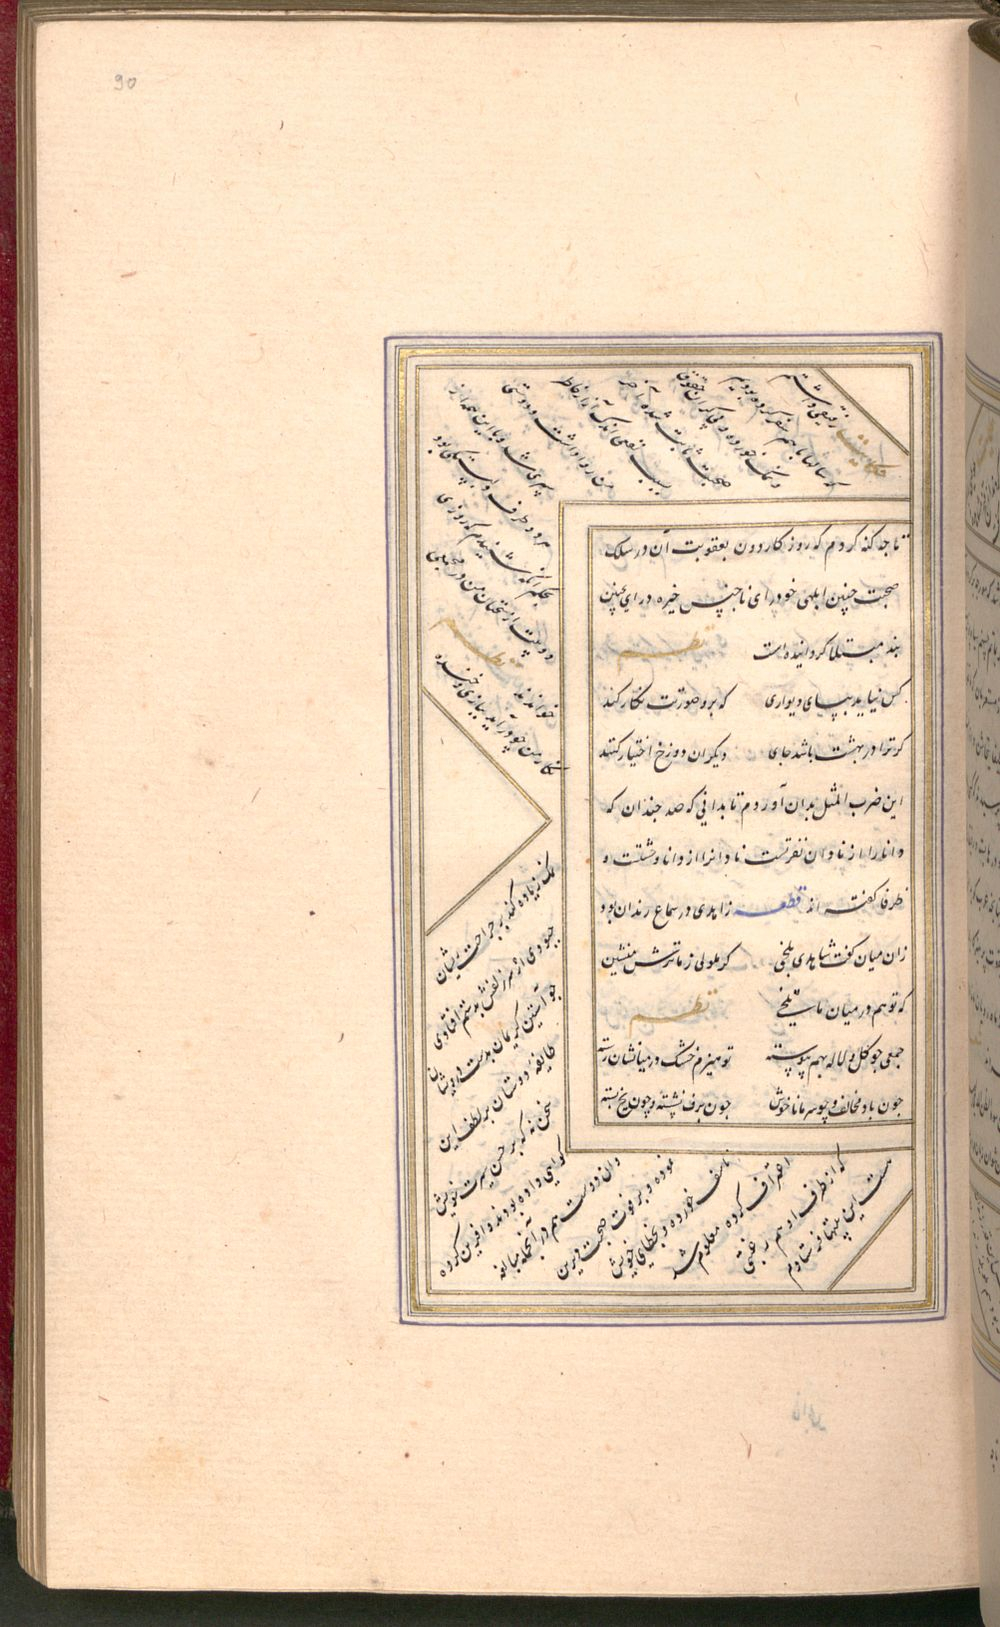 90
تا چه گنه کردم که روزگار دون بعقوبت آن در سلک
صحبت چنین ابلهی خودرای ناجنس خیره درای بچنین
بند مبتلا کردانیده است نظم
کس نیاید بپای دیواری که برو صورتت نکار کنند
کر ترا در بهشت باشد جای دیکران دوزخ اختیار کنند
این ضرب المثل بدان آوردم تا بدانی که صد چندان که
دانا را از نادان نفرتست نادانرا از دانا وحشتت و
ظرفا کفته اند قطعه زاهدی در سماع رندان بود
زان میان کفت شاهدی بلخی کر ملولی ز ما ترش منشین
که تو هم در میان ما تلخی نظم
جمعی چو کل و لاله بهم پیوسته تو هیزم خشک در میانشان رسته
چون باد مخالف و چو سرما ناخوش چون برف نشسته و چون یخ بسته
حکایت رفیقی داشتم
که سالها با هم سفر کرده بودیم
و نمک خورده و بی کران حقوق
صحبت ثابت شده آخر
بسبب نفعی اندک آزار خاطر
من روا داشت و دوستی
سپری شد و با این همه از
هر دو طرف دلبستکی بود
بحکم آنکه شنیدم که روزی
دو بیت از سخنان من در مجمعی
خواندند نظم
نکار من چو درآید بیازی و خنده
نمک زیاده کند بر جراحت ریشان
چه بودی ار سر زلفش بدستم افتادی
چو آستین کریمان بدست درویشان
طایفه دوستان بر لطف این
سخن نه که بر حسن سیرت خویش
کواهی داده بودند و آفرین کرده
وان دوست هم در آنجمله مبالغه
نموده و بر فوت صحبت دیرین
تاسف خورده و بخطای خویش
اعتراف کرده معلوم شد
که از طرف او هم رغبتی
هست این بیتها فرستادم